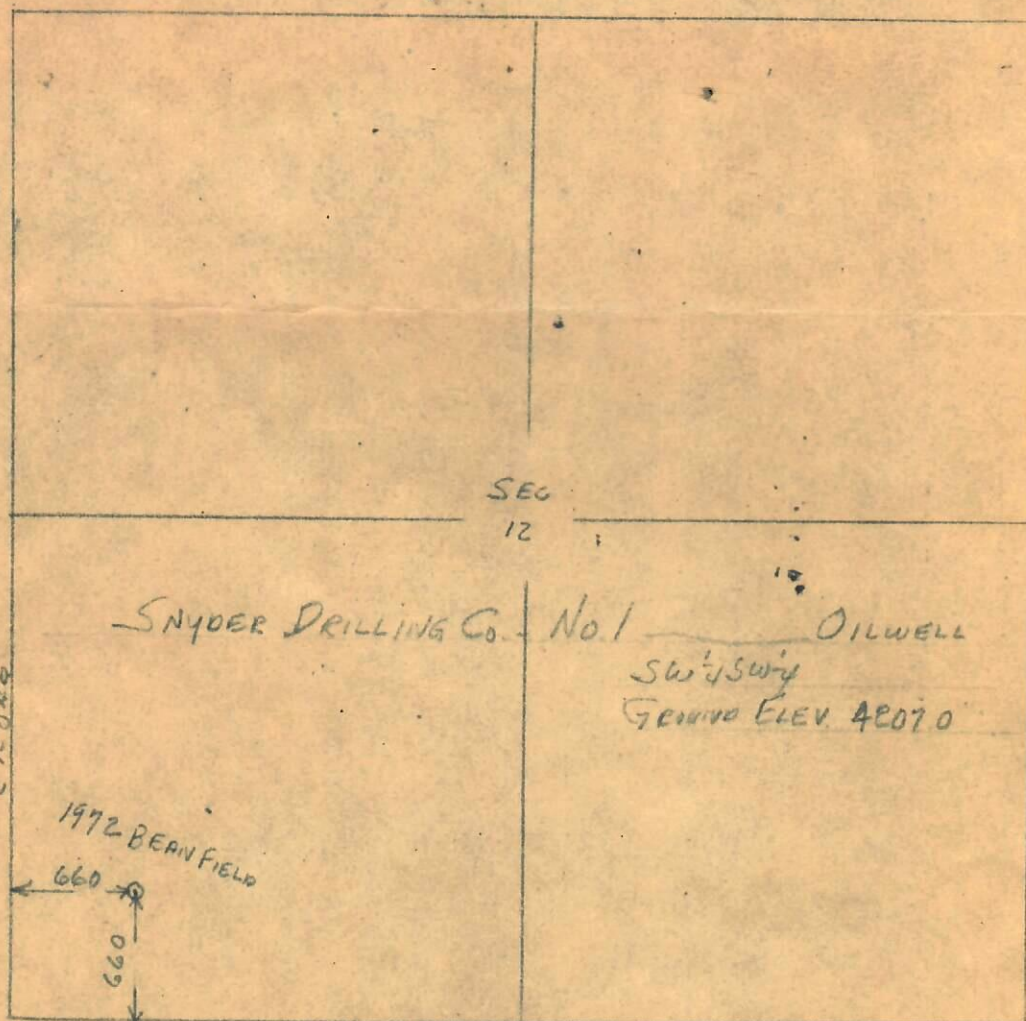 SEC
12
SNYDER DRILLING CO. No. 1 OILWELL
SW¼ SW¼
GROUND ELEV. 4207.0
1972 BEAN FIELD
660
660